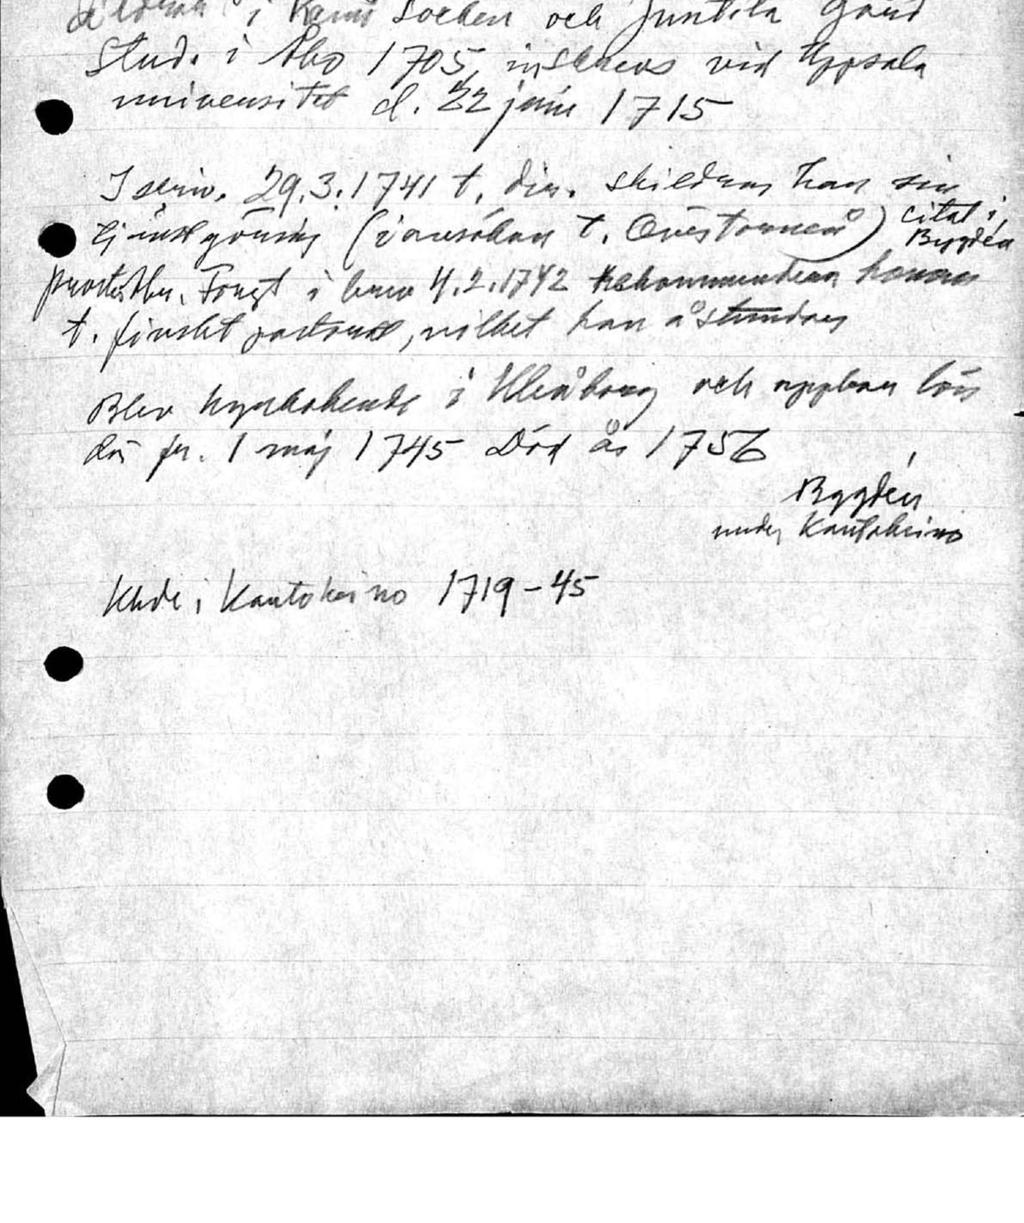 i Kemi Socken och Juntila Gård
Stud. i Åbo 1705, inskrevs vid Uppsala
universitet d. 22 juni 1715
I skriv. 29.3.1741 t. dia. skildrar han sin
tjänstgöring (i ansökan t. Övertorneå) citat i
Bygdén
Fougt i brev 4.2.1742 rekommenderar honom
t. finskt pastorat, vilket han åstundar
Blev kyrkoherde i Uleåborg och uppbar lön
där fr. 1 maj 1745 Död år 1756
Bygdén
under Kautokeino
Khde i Kautokeino 1719-45